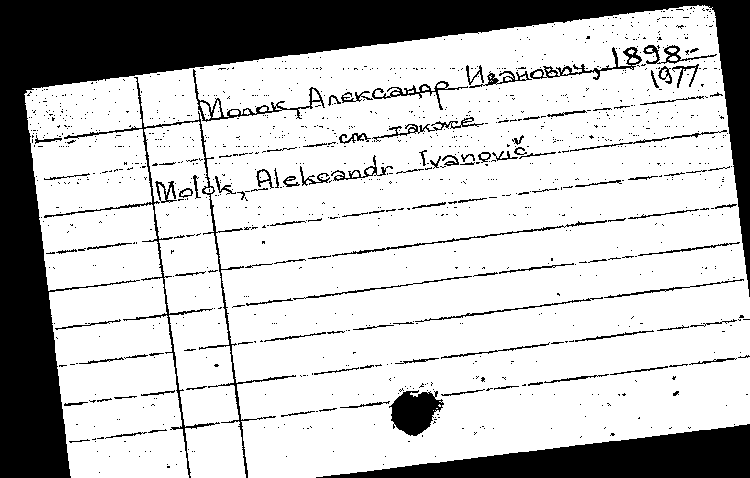 Молок, Александр Иванович, 1898-
1977.
см также
Molok, Aleksandr Ivanovič